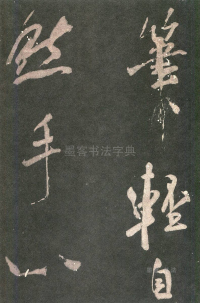 筆輕自
然手心
墨客书法字典